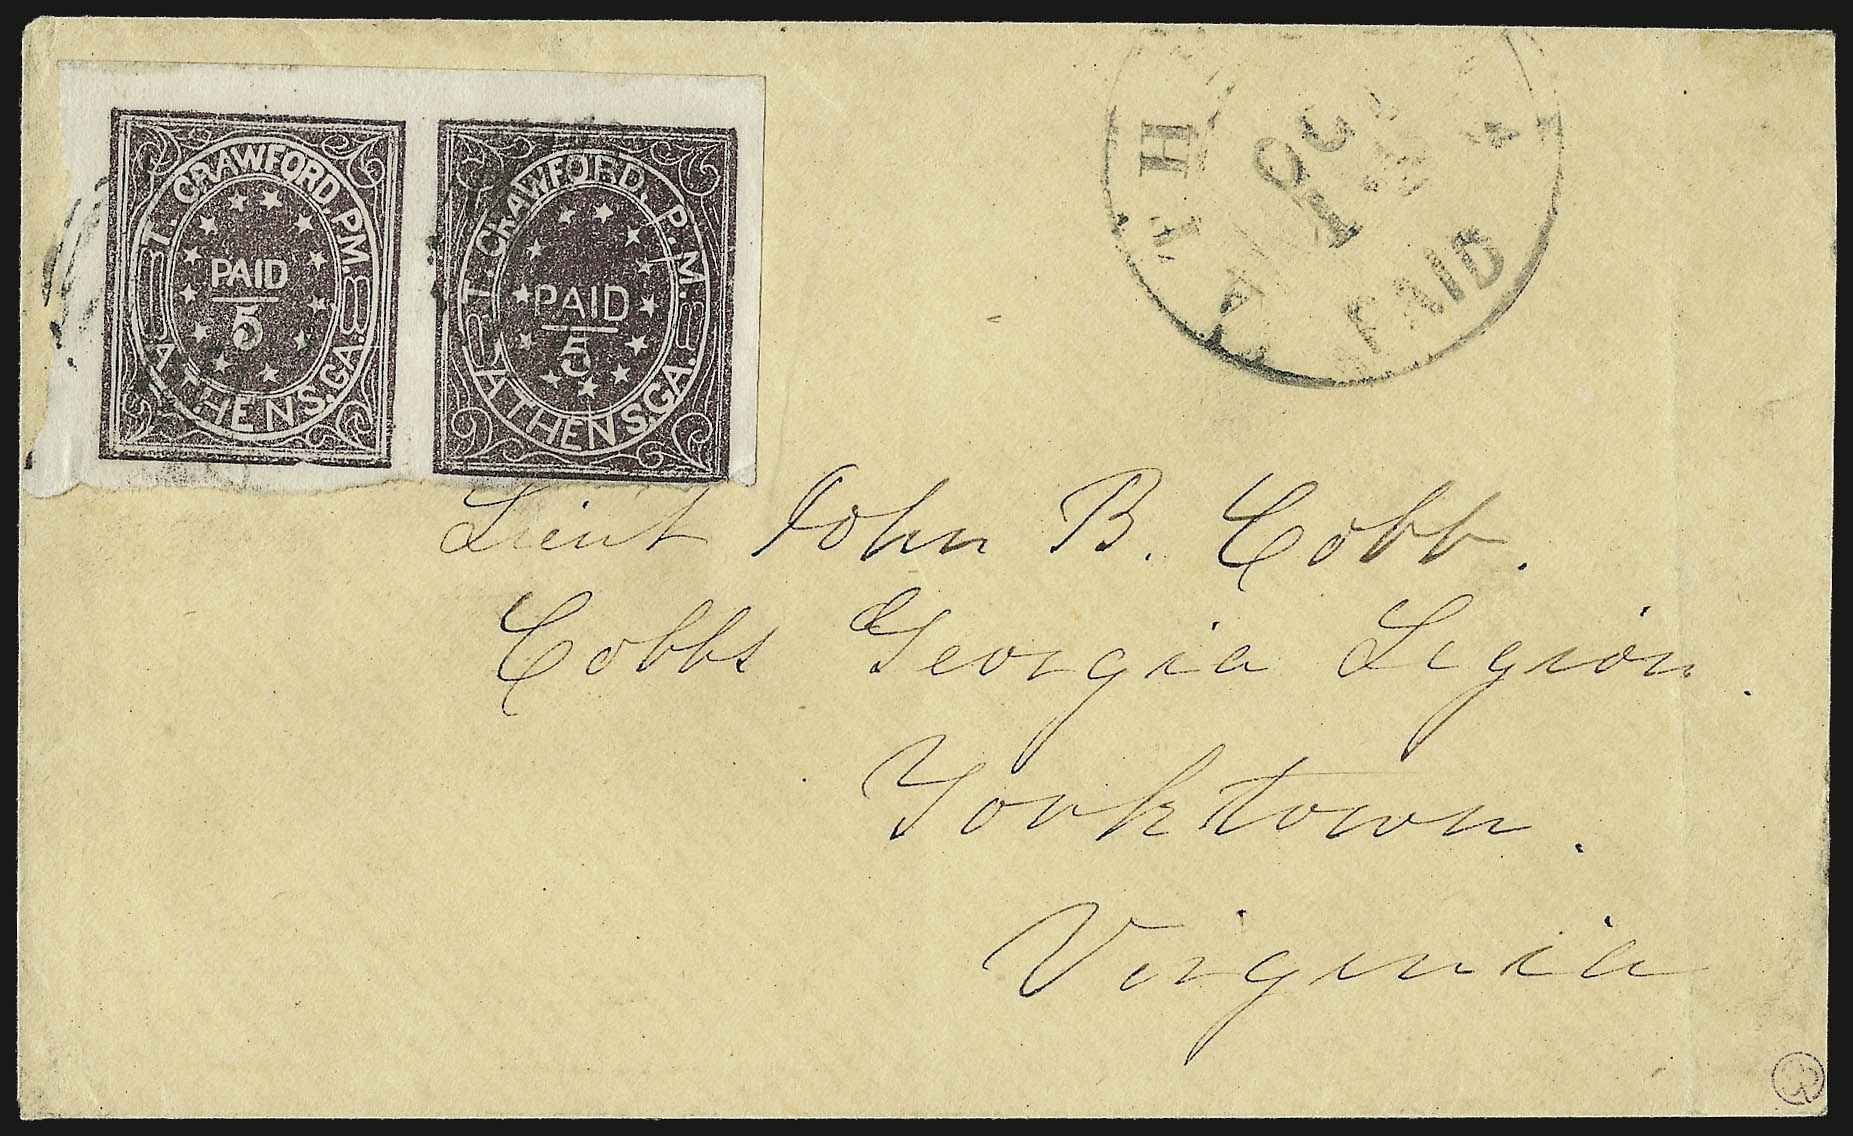 T. CRAWFORD, P.M.
PAID
5
ATHENS. GA.
T. CRAWFORD, P.M.
PAID
5
ATHENS. GA.
PAID
Lieut John B. Cobb.
Cobbs Georgia Legion.
Yorktown.
Virginia